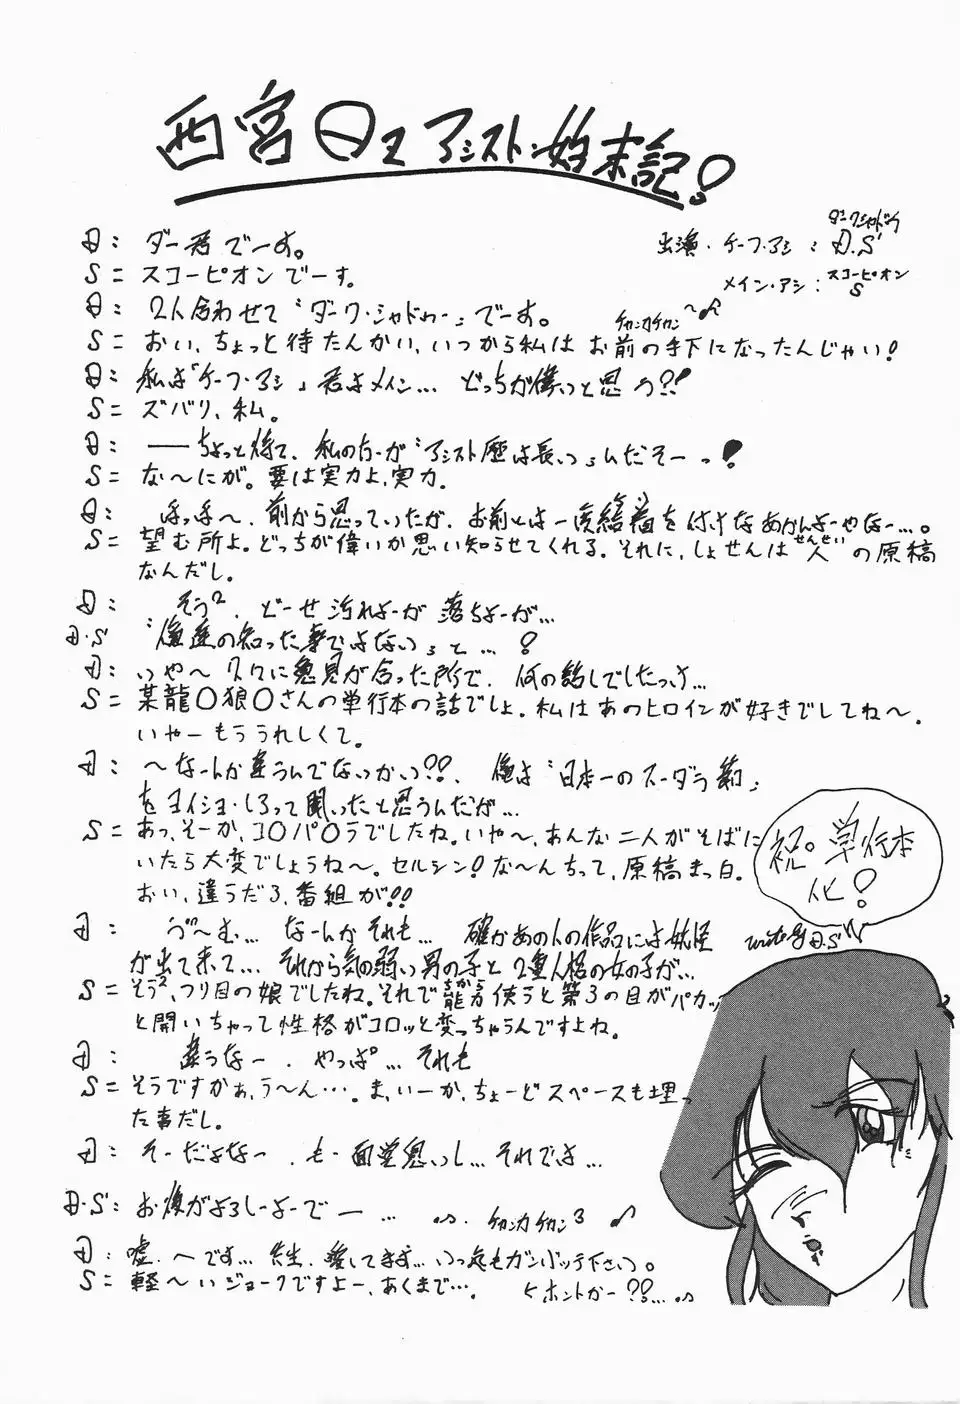 西宮日工アシスト始末記!
ダークシャドウ
出演・チーフ・アシ:D.S'
メイン・アシ:スコーピオン S
D: ダー君でーす。
S= スコーピオンでーす。
D: 2人合わせて〝ダーク・シャドゥー〟でーす。 チャンカチャン〜♪
S= おい、ちょっと待たんかい、いつから私はお前の手下になったんじゃい!
D: 私は「チーフ・アシ」君はメイン… どっちが偉いっと思う?!
S= ズバリ、私。
D: ──ちょっと待て、私の方が〝アシスト歴は長い〟んだぞーっ!
S= な〜にが。要は実力よ、実力。
D: ほっほ〜、前から思っていたが、お前とは一度結着を付けなあかんよーやなー…。
S= 望む所よ。どっちが偉いか思い知らせてくれる。それに、しょせんは人(せんせい)の原稿
なんだし。
D: そう², どーせ汚れよーが 落ちよーが…
D・S 〝俺達の知った事ではない〟と…!
D: いや〜 久々に意見が合った所で、何の話しでしたっけ…
S= 某龍〇狼〇さんの単行本の話でしょ。私はあのヒロインが好きでしてね〜。
いやーもううれしくて。
D: 〜なーんか違うんでないかい??、俺は〝日本一のスーダラ節〟
をヨイショ・しろって聞いたと思うんだが…
S= あっ、そーか、コ〇パ〇ラでしたね。いや〜、あんな二人がそばに
いたら大変でしょうね〜。セルシン!な〜んちって、原稿まっ白。
おい、違うだろ、番組が!!
D: う〜む… なーんかそれも… 確かあの人の作品には妖怪
が出て来て… それから気の弱い男の子と2重人格の女の子が…
S= そう²、つり目の娘でしたね。それで能力(ちから)使うと第3の目がパカッ
と開いちゃって性格がコロッと変っちゃうんですよね。
D: 違うなー、やっぱ…それも
S= そうですかぁ、う〜ん…。ま、いーか、ちょーどスペースも埋っ
た事だし。
D: そーだよなー、も・面堂臭いし… それでは…
D・S: お後がよろしーよーで ー … チャンカチャン³ ♪
D: 嘘、〜です… 先生、愛してます… いつ迄もガンバッテ下さい。
S= 軽〜いジョークですよー、あくまで…。 ヒホントかー??…
祝。単行本
化!
write by D.S'